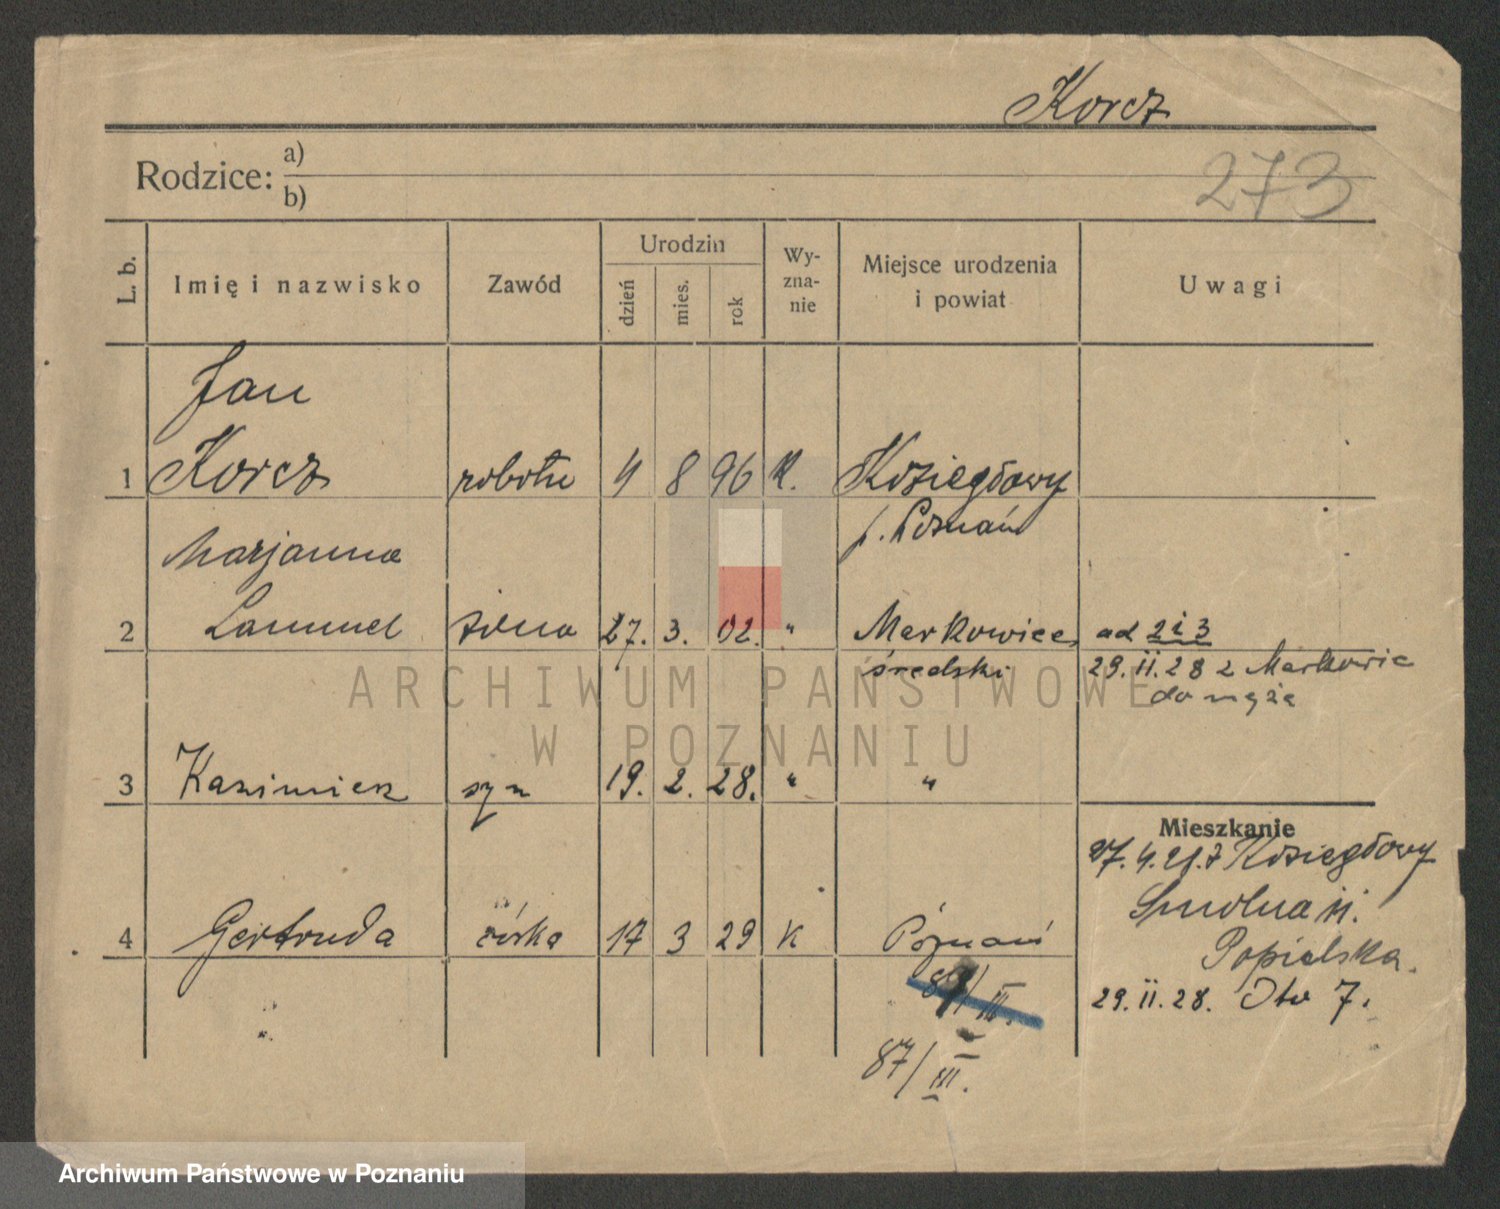 Korcz
Rodzice: a)
b)
273
L. b.
Imię i nazwisko
Zawód
Urodzin
dzień
mies.
rok
Wy-
zna-
nie
Miejsce urodzenia
i powiat
Uwagi
Jan
1 Korcz robotn 4 8 96 K. Koziegłowy
p. Poznań
Marjanna
2 Lammel żona 27. 3. 02. " Markowice, ad 2 i 3
średzki 29.II.28 z Markowic
do męża
3 Kazimierz syn 19. 2. 28. " "
Mieszkanie
27.4.21. z Koziegłowy
4 Gertruda córka 17 3 29 K Poznań
Smolna 11.
Popielska.
29.II.28. 7.
87/III.
ARCHIWUM PAŃSTWOWE
W POZNANIU
Archiwum Państwowe w Poznaniu